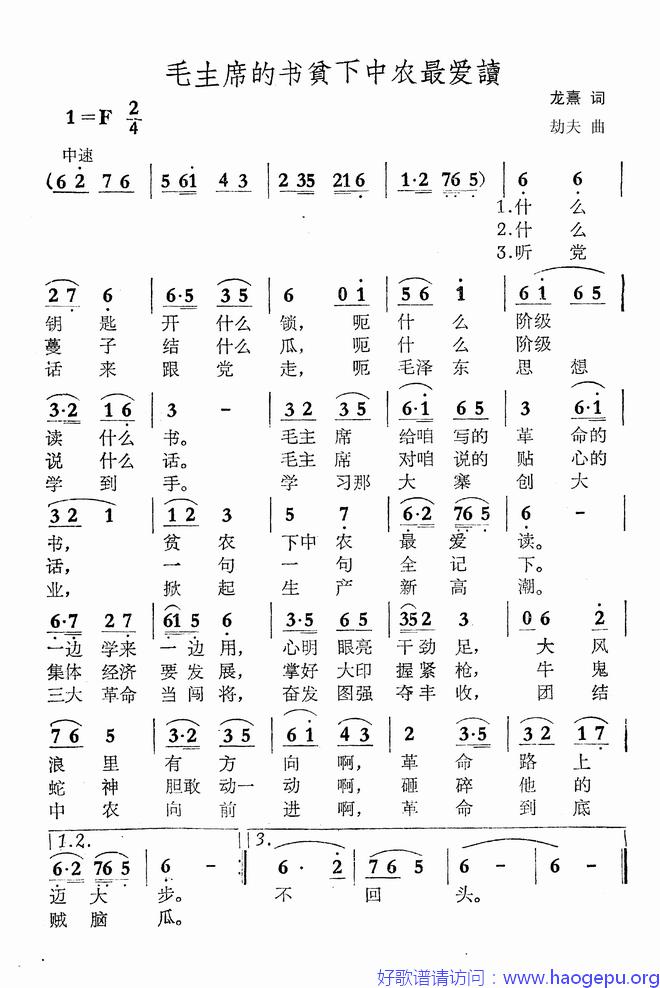 毛主席的书貧下中农最爱讀
龙熹 词
1=F 2/4
劫夫 曲
中速
(6 2 7 6 | 5 61 4 3 | 2 35 216 | 1·2 76 5) | 6 6 |
1.什 么
2.什 么
3.听 党
2 7 6 | 6·5 3 5 | 6 0 1 | 5 6 1 | 6 1 6 5 |
钥 匙 开 什么 锁, 呃 什 么 阶级
蔓 子 结 什么 瓜, 呃 什 么 阶级
话 来 跟 党 走, 呃 毛泽 东 思 想
3·2 1 6 | 3 - | 3 2 3 5 | 6·1 6 5 | 3 6·1 |
读 什么 书。 毛主 席 给咱 写的 革 命的
说 什么 话。 毛主 席 对咱 说的 贴 心的
学 到 手。 学 习那 大 寨 创 大
3 2 1 | 1 2 3 | 5 7 | 6·2 76 5 | 6 - |
书, 贫 农 下中 农 最 爱 读。
话, 一 句 一 句 全 记 下。
业, 掀 起 生 产 新 高 潮。
6·7 2 7 | 61 5 6 | 3·5 6 5 | 35 2 3 | 0 6 2 |
一边 学来 一 边 用, 心明 眼亮 干 劲 足, 大 风
集体 经济 要 发 展, 掌好 大印 握 紧 枪, 牛 鬼
三大 革命 当 闯 将, 奋发 图强 夺 丰 收, 团 结
7 6 5 | 3·2 3 5 | 6 1 4 3 | 2 3·5 | 3 2 1 7 |
浪 里 有 方 向 啊, 革 命 路 上
蛇 神 胆敢 动一 动 啊, 砸 碎 他 的
中 农 向 前 进 啊, 革 命 到 底
1.2. 3.
6·2 76 5 | 6 - :| 6 · 2 | 7 6 5 | 6 - | 6 - ‖
迈 大 步。 不 回 头。
贼 脑 瓜。
好歌谱请访问：www.haogepu.org